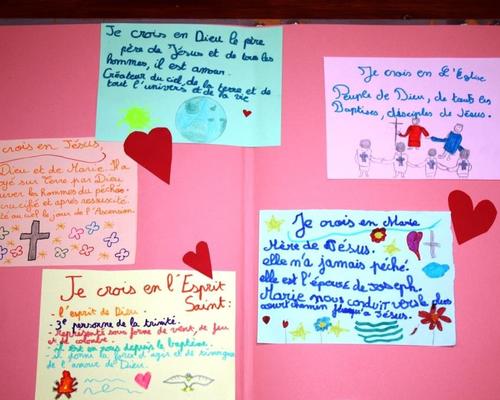 Je crois en Dieu le père
père de Jésus et de tous les
hommes, il est amour.
Créateur du ciel, de la terre et de
tout l'univers et de la vie
Je crois en L'Église
Peuple de Dieu, de tous les
Baptisés, disciples de Jésus.
crois en Jésus,
Dieu et de Marie. Il a
yé sur Terre par Dieu
uver les hommes du péché.
crucifié et après ressuscité.
té au ciel le jour de l'Ascension
Je crois en Marie
Mère de Jésus.
elle n'a jamais péché.
elle est l'épouse de Joseph.
Marie nous conduit vers le plus
court chemin jusqu'à Jésus.
Je crois en l'Esprit
Saint:
- l'esprit de Dieu.
- 3e personne de la trinité.
- Représenté sous forme de vent, de feu
et de colombe.
- il est en nous depuis le baptême.
- il donne la force d'agir et de témoigner
de l'amour de Dieu.